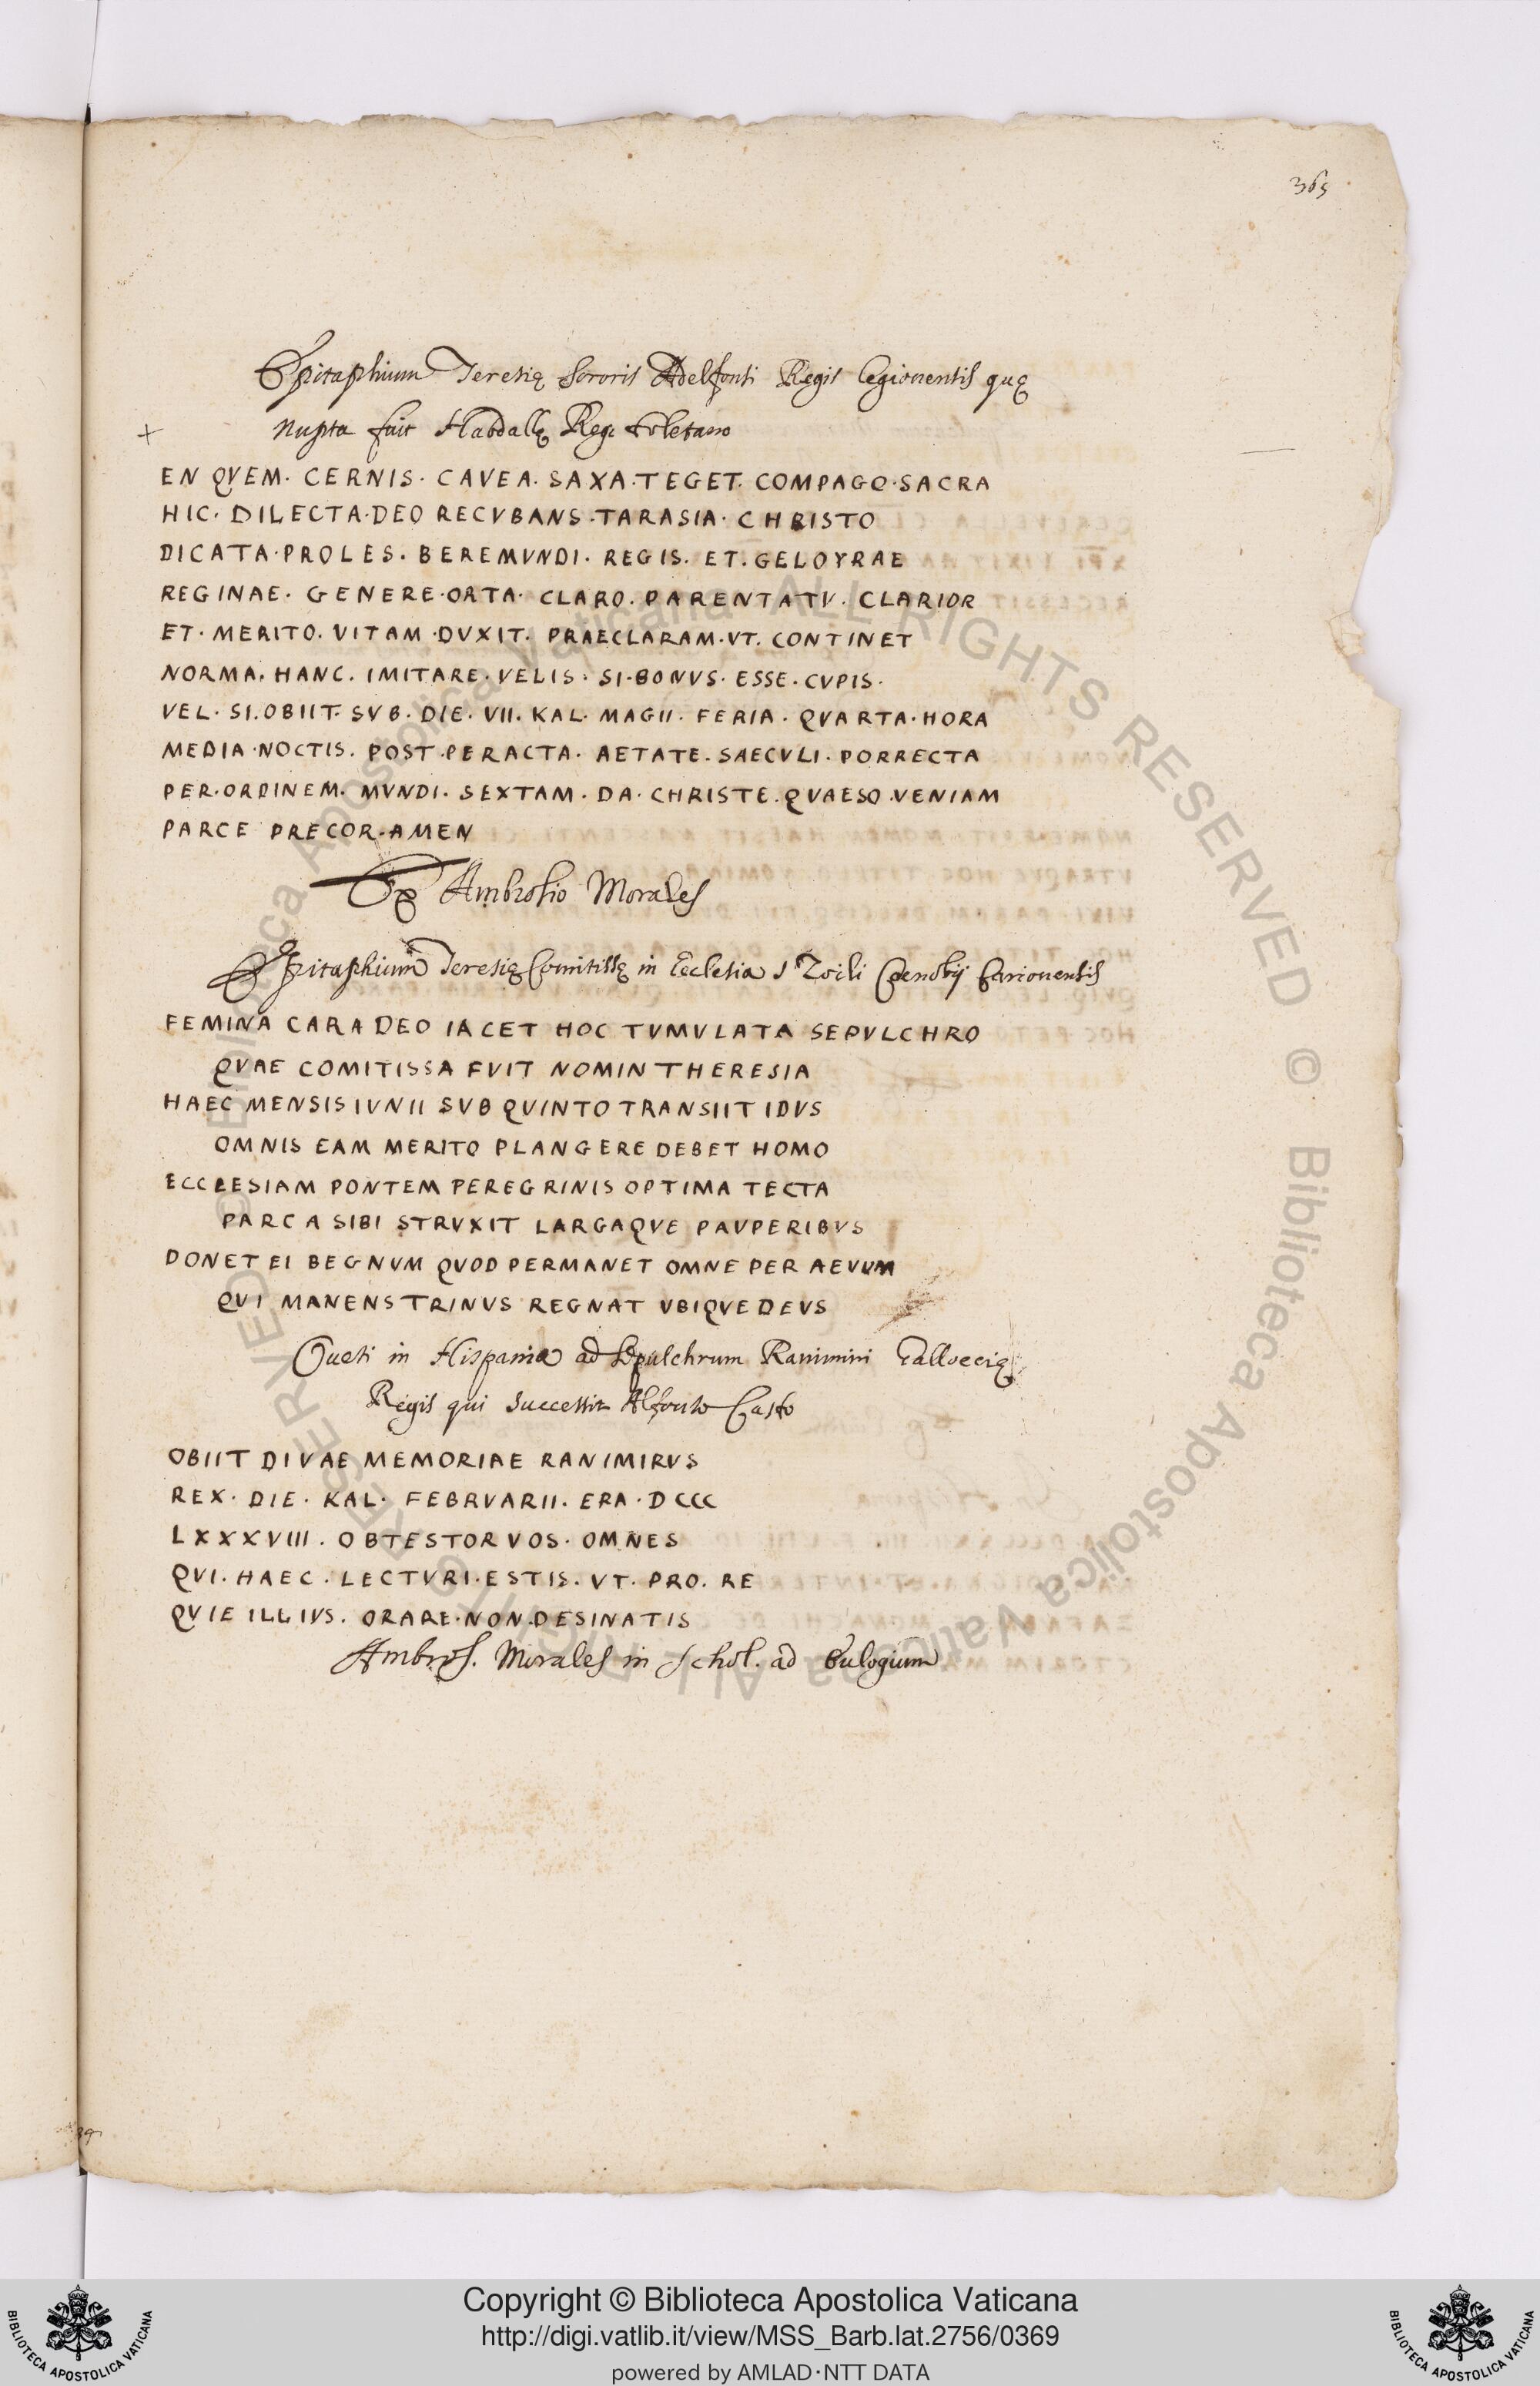 365
Epitaphium Teresię Sororis Adelfonsi Regis legionensis quę
+ nupta fuit Habdallę Regi toletano
EN QVEM. CERNIS. CAVEA. SAXA. TEGET. COMPAGO. SACRA
HIC. DILECTA. DEO RECVBANS. TARASIA. CHRISTO
DICATA. PROLES. BEREMVNDI. REGIS. ET. GELOYRAE
REGINAE. GENERE. ORTA. CLARO. PARENTATV. CLARIOR
ET. MERITO. VITAM. DVXIT. PRAECLARAM. VT. CONTINET
NORMA. HANC. IMITARE. VELIS. SI. BONVS. ESSE. CVPIS.
VEL. SI. OBIIT. SVB. DIE. VII. KAL. MAGII. FERIA. QVARTA. HORA
MEDIA. NOCTIS. POST. PERACTA. AETATE. SAECVLI. PORRECTA
PER. ORDINEM. MVNDI. SEXTAM. DA. CHRISTE. QVAESO. VENIAM
PARCE PRECOR. AMEN
Ex Ambrosio Morales
Epitaphium Teresię Comitissę in Ecclesia S Zoili Coenobij Carionensis
FEMINA CARA DEO IACET HOC TVMVLATA SEPVLCHRO
QVAE COMITISSA FVIT NOMIN THERESIA
HAEC MENSIS IVNII SVB QVINTO TRANSIIT IDVS
OMNIS EAM MERITO PLANGERE DEBET HOMO
ECCLESIAM PONTEM PEREGRINIS OPTIMA TECTA
PARCA SIBI STRVXIT LARGAQVE PAVPERIBVS
DONET EI BEGNVM QVOD PERMANET OMNE PER AEVVM
QVI MANENS TRINVS REGNAT VBIQVE DEVS
Oueti in Hispania ad Sepulchrum Ranimini Galloecię
Regis qui successit Alfonso Casto
OBIIT DIVAE MEMORIAE RANIMIRVS
REX. DIE. KAL. FEBRVARII. ERA. DCCC
LXXXVIII. OBTESTOR VOS. OMNES
QVI. HAEC. LECTVRI. ESTIS. VT. PRO. RE
QVIE ILLIVS. ORARE. NON. DESINATIS
Ambros. Morales in Schol. ad Eulogium
Copyright © Biblioteca Apostolica Vaticana
http://digi.vatlib.it/view/MSS_Barb.lat.2756/0369
powered by AMLAD·NTT DATA
BIBLIOTECA APOSTOLICA VATICANA
BIBLIOTECA APOSTOLICA VATICANA
© Biblioteca Apostolica Vaticana ALL RIGHTS RESERVED © Biblioteca Apostolica Vaticana ALL RIGHTS RESERVED